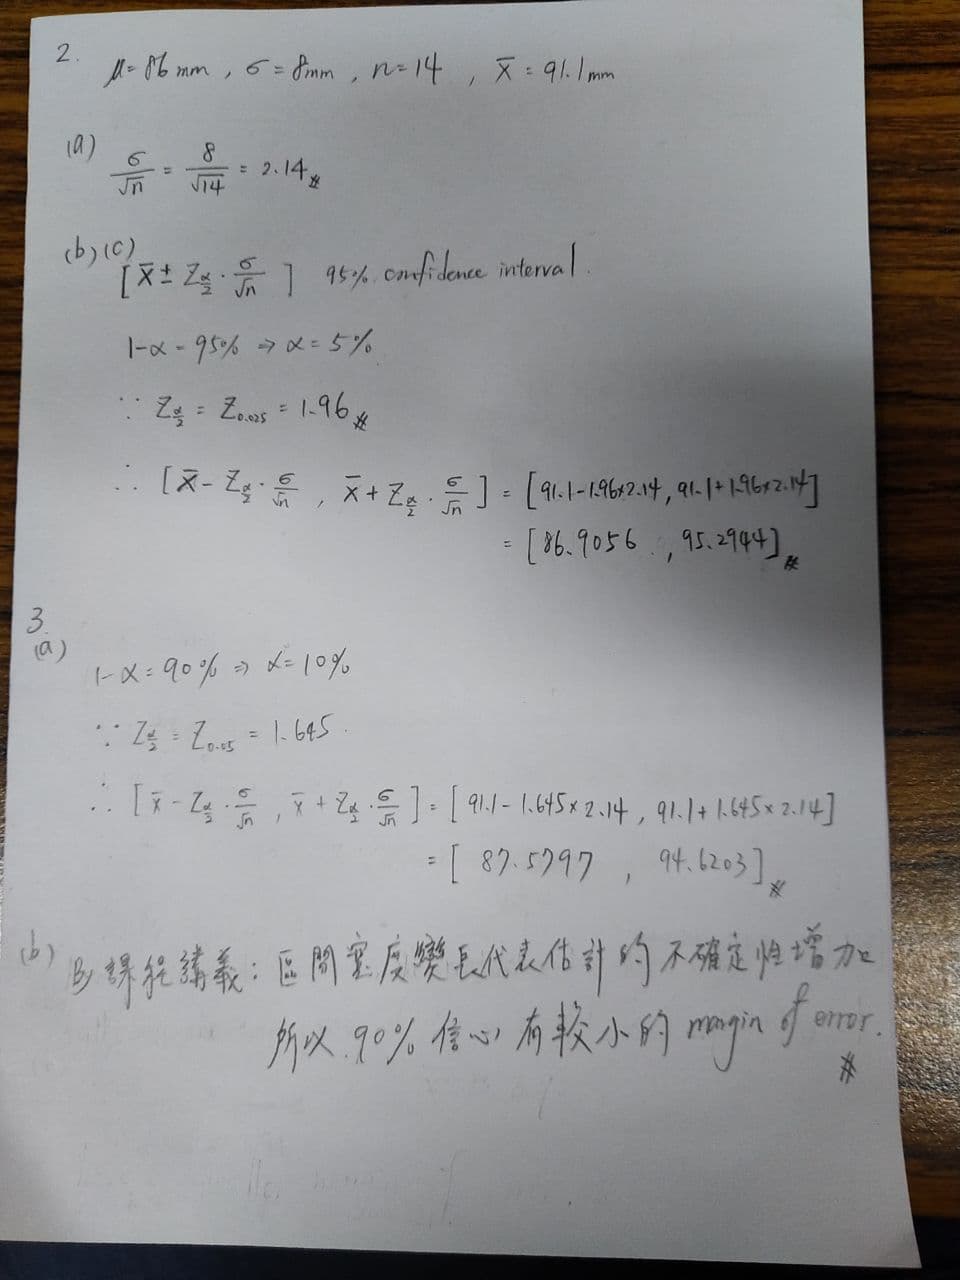 2. μ=86mm, σ=8mm, n=14, x̄=91.1mm
(a) σ/√n = 8/√14 = 2.14 #
(b)(c)
[x̄ ± Z_{α/2} · σ/√n] 95% confidence interval.
1-α=95% ⇒ α=5%
∵ Z_{α/2} = Z_{0.025} = 1.96 #
∴ [x̄ - Z_{α/2} · σ/√n, x̄ + Z_{α/2} · σ/√n] = [91.1-1.96×2.14, 91.1+1.96×2.14]
= [86.9056, 95.2944] #
3.
(a)
1-α=90% ⇒ α=10%
∵ Z_{α/2} = Z_{0.05} = 1.645.
∴ [x̄ - Z_{α/2} · σ/√n, x̄ + Z_{α/2} · σ/√n] = [91.1-1.645×2.14, 91.1+1.645×2.14]
= [87.5797, 94.6203] #
(b) By 課程講義: 區間寬度變長代表估計的不確定性增加
所以 90% 信心有較小的 margin of error. #